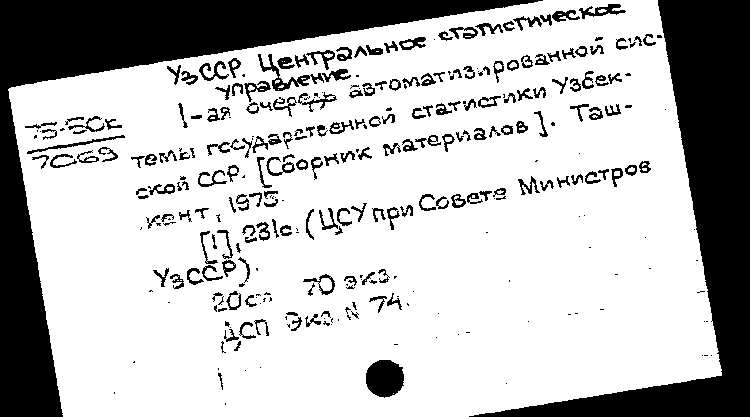 УзССР. Центральное статистическое
управление.
75-50к
7069
1-ая очередь автоматизированной сис-
темы государственной статистики Узбек-
ской ССР. [Сборник материалов]. Таш-
кент, 1975.
[1], 231с. (ЦСУ при Совете Министров
УзССР).
20см 70 экз.
ДСП Экз. N 74.